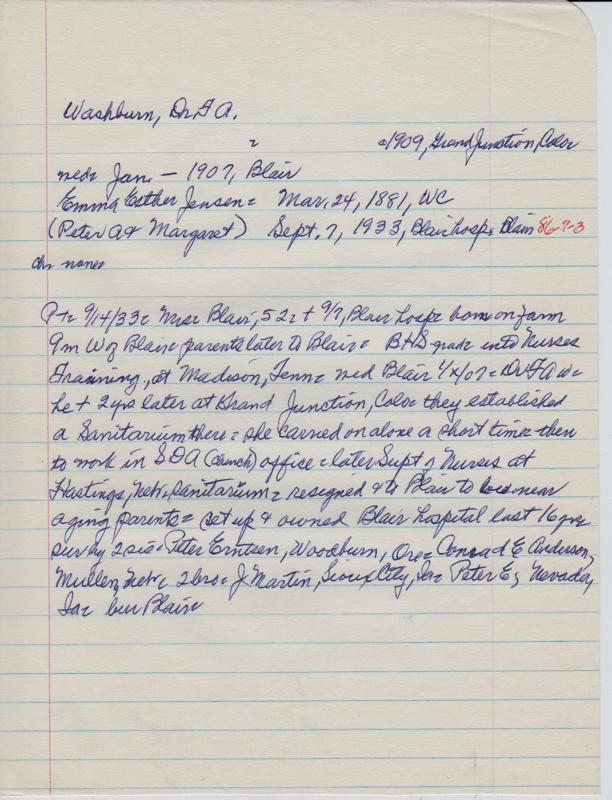 Washburn, Dr F A.
= =1909, Grand Junction, Color
med= Jan. - 1907, Blair
Emma Esther Jensen= Mar. 24, 1881, WC
(Peter A & Margaret) Sept. 7, 1933, Blair hosp= Blair 86-7-3
Ch= none=
P+= 9/14/33= Mrs= Blair, 52= + 9/7, Blair hosp= born on farm
9m W of Blair= parents later to Blair= BHS grad= into Nurses
Training, at Madison, Tenn= med Blair 1/x/07= Dr F A W=
he + 2 yrs later at Grand Junction, Color they established
a Sanitarium there= she carried on alone a short time= then
to work in SDA (church) office= later Supt of Nurses at
Hastings, Nebr= sanitarium= resigned & to Blair to be near
aging parents= set up & owned Blair hospital last 16 yrs
sur by 2 sis= Peter Erntsen, Woodburn, Ore= Conrad E Anderson,
Mullen, Nebr= 2 bro= J Martin, Sioux City, Ia= Peter E, Nevada,
Ia= bur Blair=